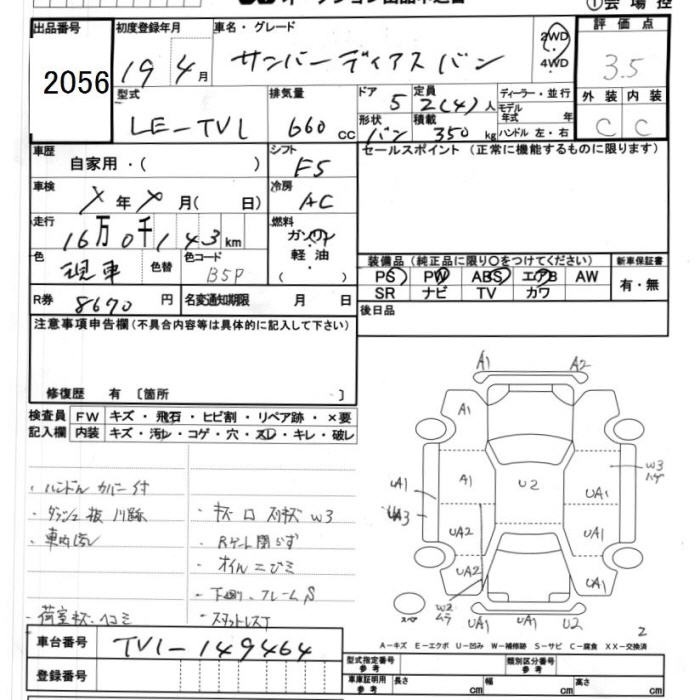 ①会場控
出品番号 2056
初度登録年月 19年 4月
車名・グレード サンバー ディアス バン
2WD
4WD
評価点 3.5
型式 LE-TV1
排気量 660 cc
ドア 5
定員 2(4)人
形状 バン
積載 350 kg
ディーラー・並行
モデル年式 年
ハンドル 左・右
外装 内装
C C
車歴 自家用・( )
シフト F5
セールスポイント (正常に機能するものに限ります)
車検 X年X月( 日)
冷房 AC
走行 16万0千143km
燃料 ガソリン
軽油
( )
色 現車
色替
色コード B5P
R券 8670円
名変通知期限 月 日
装備品 (純正品に限り○をつけてください)
PS PW ABS エアB AW
SR ナビ TV カワ
新車保証書
有・無
後日品
注意事項申告欄(不具合内容等は具体的に記入して下さい)
修復歴 有 〔箇所 〕
検査員記入欄
FW キズ・飛石・ヒビ割・リペア跡・×要
内装 キズ・汚レ・コゲ・穴・スレ・キレ・破レ
・ハンドル カバー付
・車内汚レ
・Rゲート開かず
・オイルニジミ
・下廻り、フレームS
・荷室キズ、ヘコミ
・スタットレスT
A1 A2
A1
W3
ハゲ
UA1 A1 U2 UA1
UA3 UA2 UA1
UA2 UA1
W2
ムラ
スペア
UA1 UA1 U2
2
A-キズ E-エクボ U-凹み W-補修跡 S-サビ C-腐食 XX-交換済
車台番号 TV1-149464
登録番号
型式指定番号 参考
類別区分番号 参考
車庫証明用 参考 長さ cm 幅 cm 高さ cm